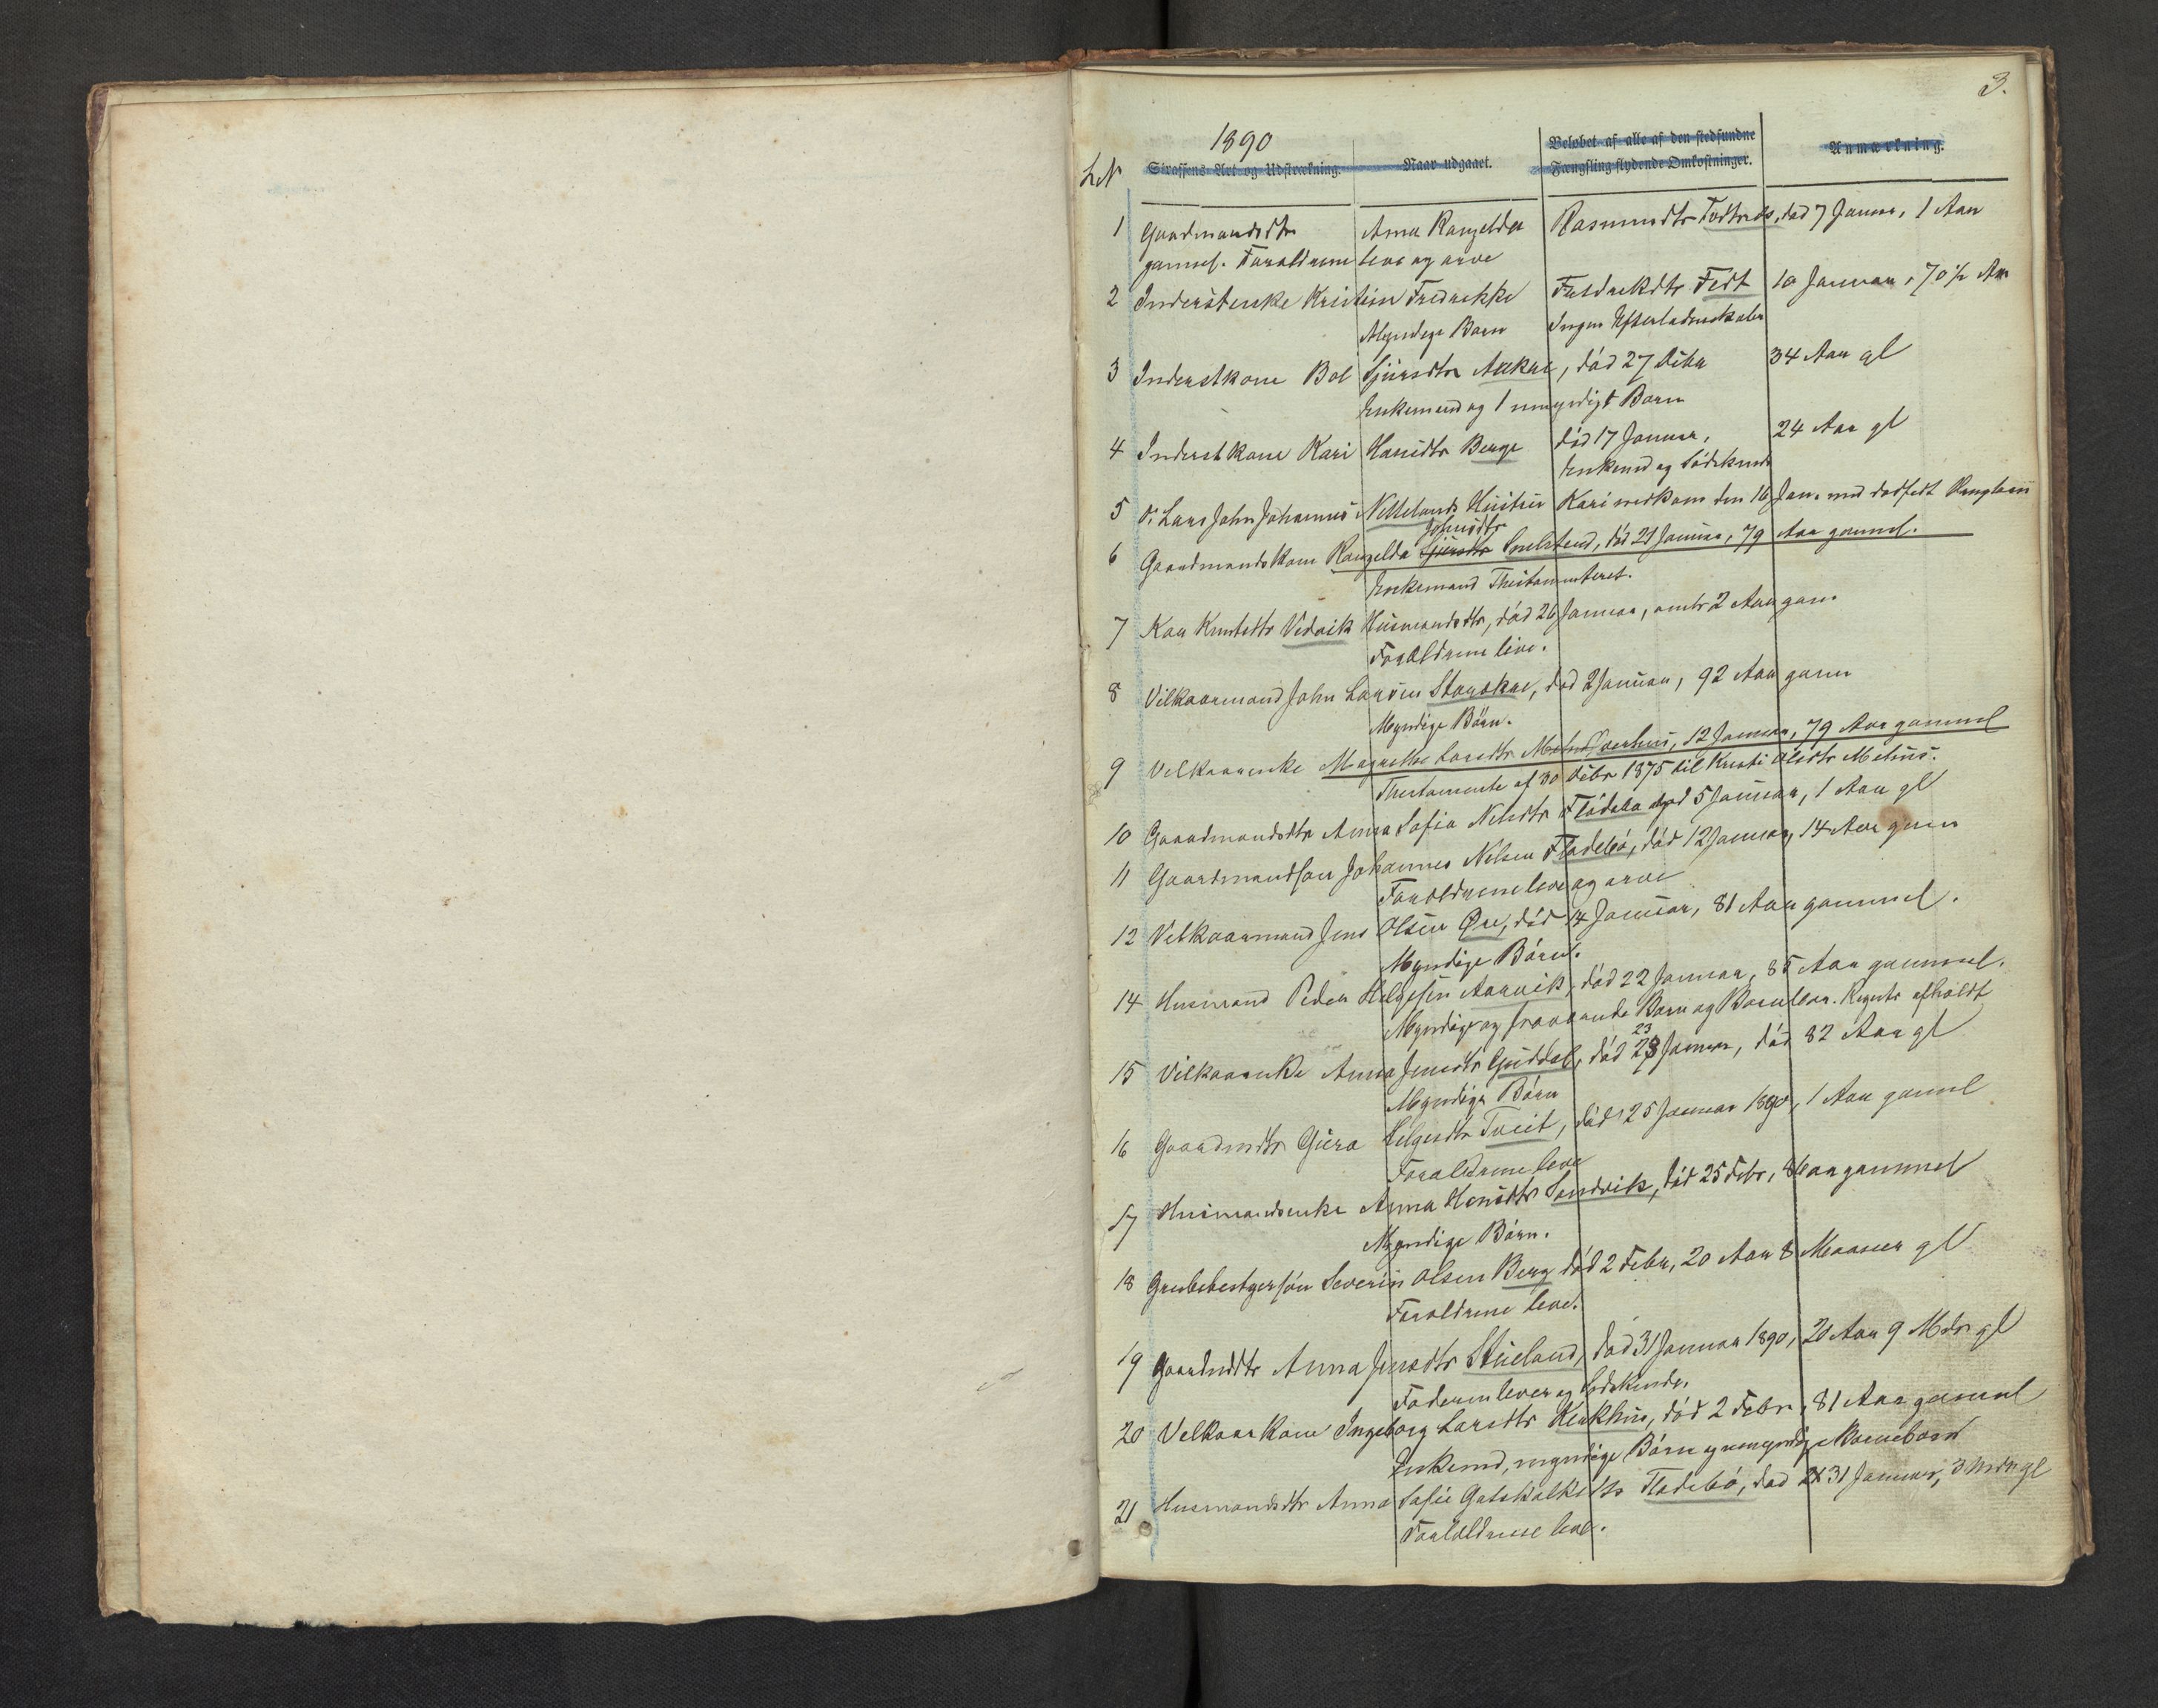 3.
1890
LN
Straffens Art og Udstrækning. Naar udgaaet. Beløbet af alle af den stedfundne Fængsling flydende Omkostninger. Anmærkning.
1 Gaardmandsdtr Anna Rangelda Rasmusdtr død 7 Januar, 1 Aar
gammel. Forældrene leve og arve
2 Inderstenke Kristine Fredrekke Fredrekdtr Fedt 10 Januar, 70½ Aar
Myndige Børn Ingen Efterladenskaber
3 Inderstkone Bol Sjursdtr død 27 34 Aar gl
Enkemand og 1 umyndigt Barn
4 Inderstkone Kari Hansdtr Berge død 17 Januar, 24 Aar gl
Enkemd og Sødskende
5 Lars John Johannes Nettelands Hustru Kari nedkom den 16 Jan. med dødfødt
6 Gaardmandskone Rangelda Sjursdtr Johnsdtr død 21 Januar, 79 Aar gammel.
Enkemand Thestamenteret.
7 Kari Knutsdtr Vedvik Husmandsdtr, død 26 Januar, omtr 2 Aar gam.
Forældrene leve.
8 Vilkaarmand John Larsen død 2 Januar, 92 Aar gamm
Myndige Børn.
9 Velkaarenke Magrethe Larsdtr 12 Januar, 79 Aar gammel
Thestamente af 30 1875 til Kristi Olsdtr Mehus.
10 Gaardmandsdtr Anna Sofia Nelsdtr død 5 Januar, 1 Aar gl
11 Gaardmandsøn Johannes Nelsen Fladebø, død 12 Januar, 14 Aar gamm
Forældrene leve og arve
12 Velkaarmand Jens Olsen Øre, død 14 Januar, 81 Aar gammel.
Myndige Børn.
14 Husmand Peder Helgesen Aarvik, død 22 Januar, 85 Aar gammel.
Myndige og fraværende Børn og Børnebørn. afholdt
15 Vilkaarenke Anna Jensdtr Guddal, død 23 Januar, død 82 Aar gl
Myndige Børn
16 Gaardmdtr Gura Helgesdtr Tveit, død 25 Januar 1890, 1 Aar gammel
Forældrene leve
17 Husmandsenke Anna Hansdtr Sandvik, død 25 Febr, 86 aar gammel
Myndige Børn.
18 Severin Olsen Berg død 2 Febr, 20 Aar 8 Maaneder gl
Forældrene leve.
19 Gaardmdtr Anna Jensdtr Stueland, død 31 Januar 1890, 20 Aar 9 Mdr gl
Faderen lever og Sødskende.
20 Velkaarkone Ingeborg Larsdtr død 2 Febr, 81 Aar gammel
Enkemd, myndige Børn og umyndige Børnebørn
21 Husmandsdtr Anna Sofie Gotskalksdtr Fladebø, død 31 Januar, 3 Mdr gl
Forældrene leve.